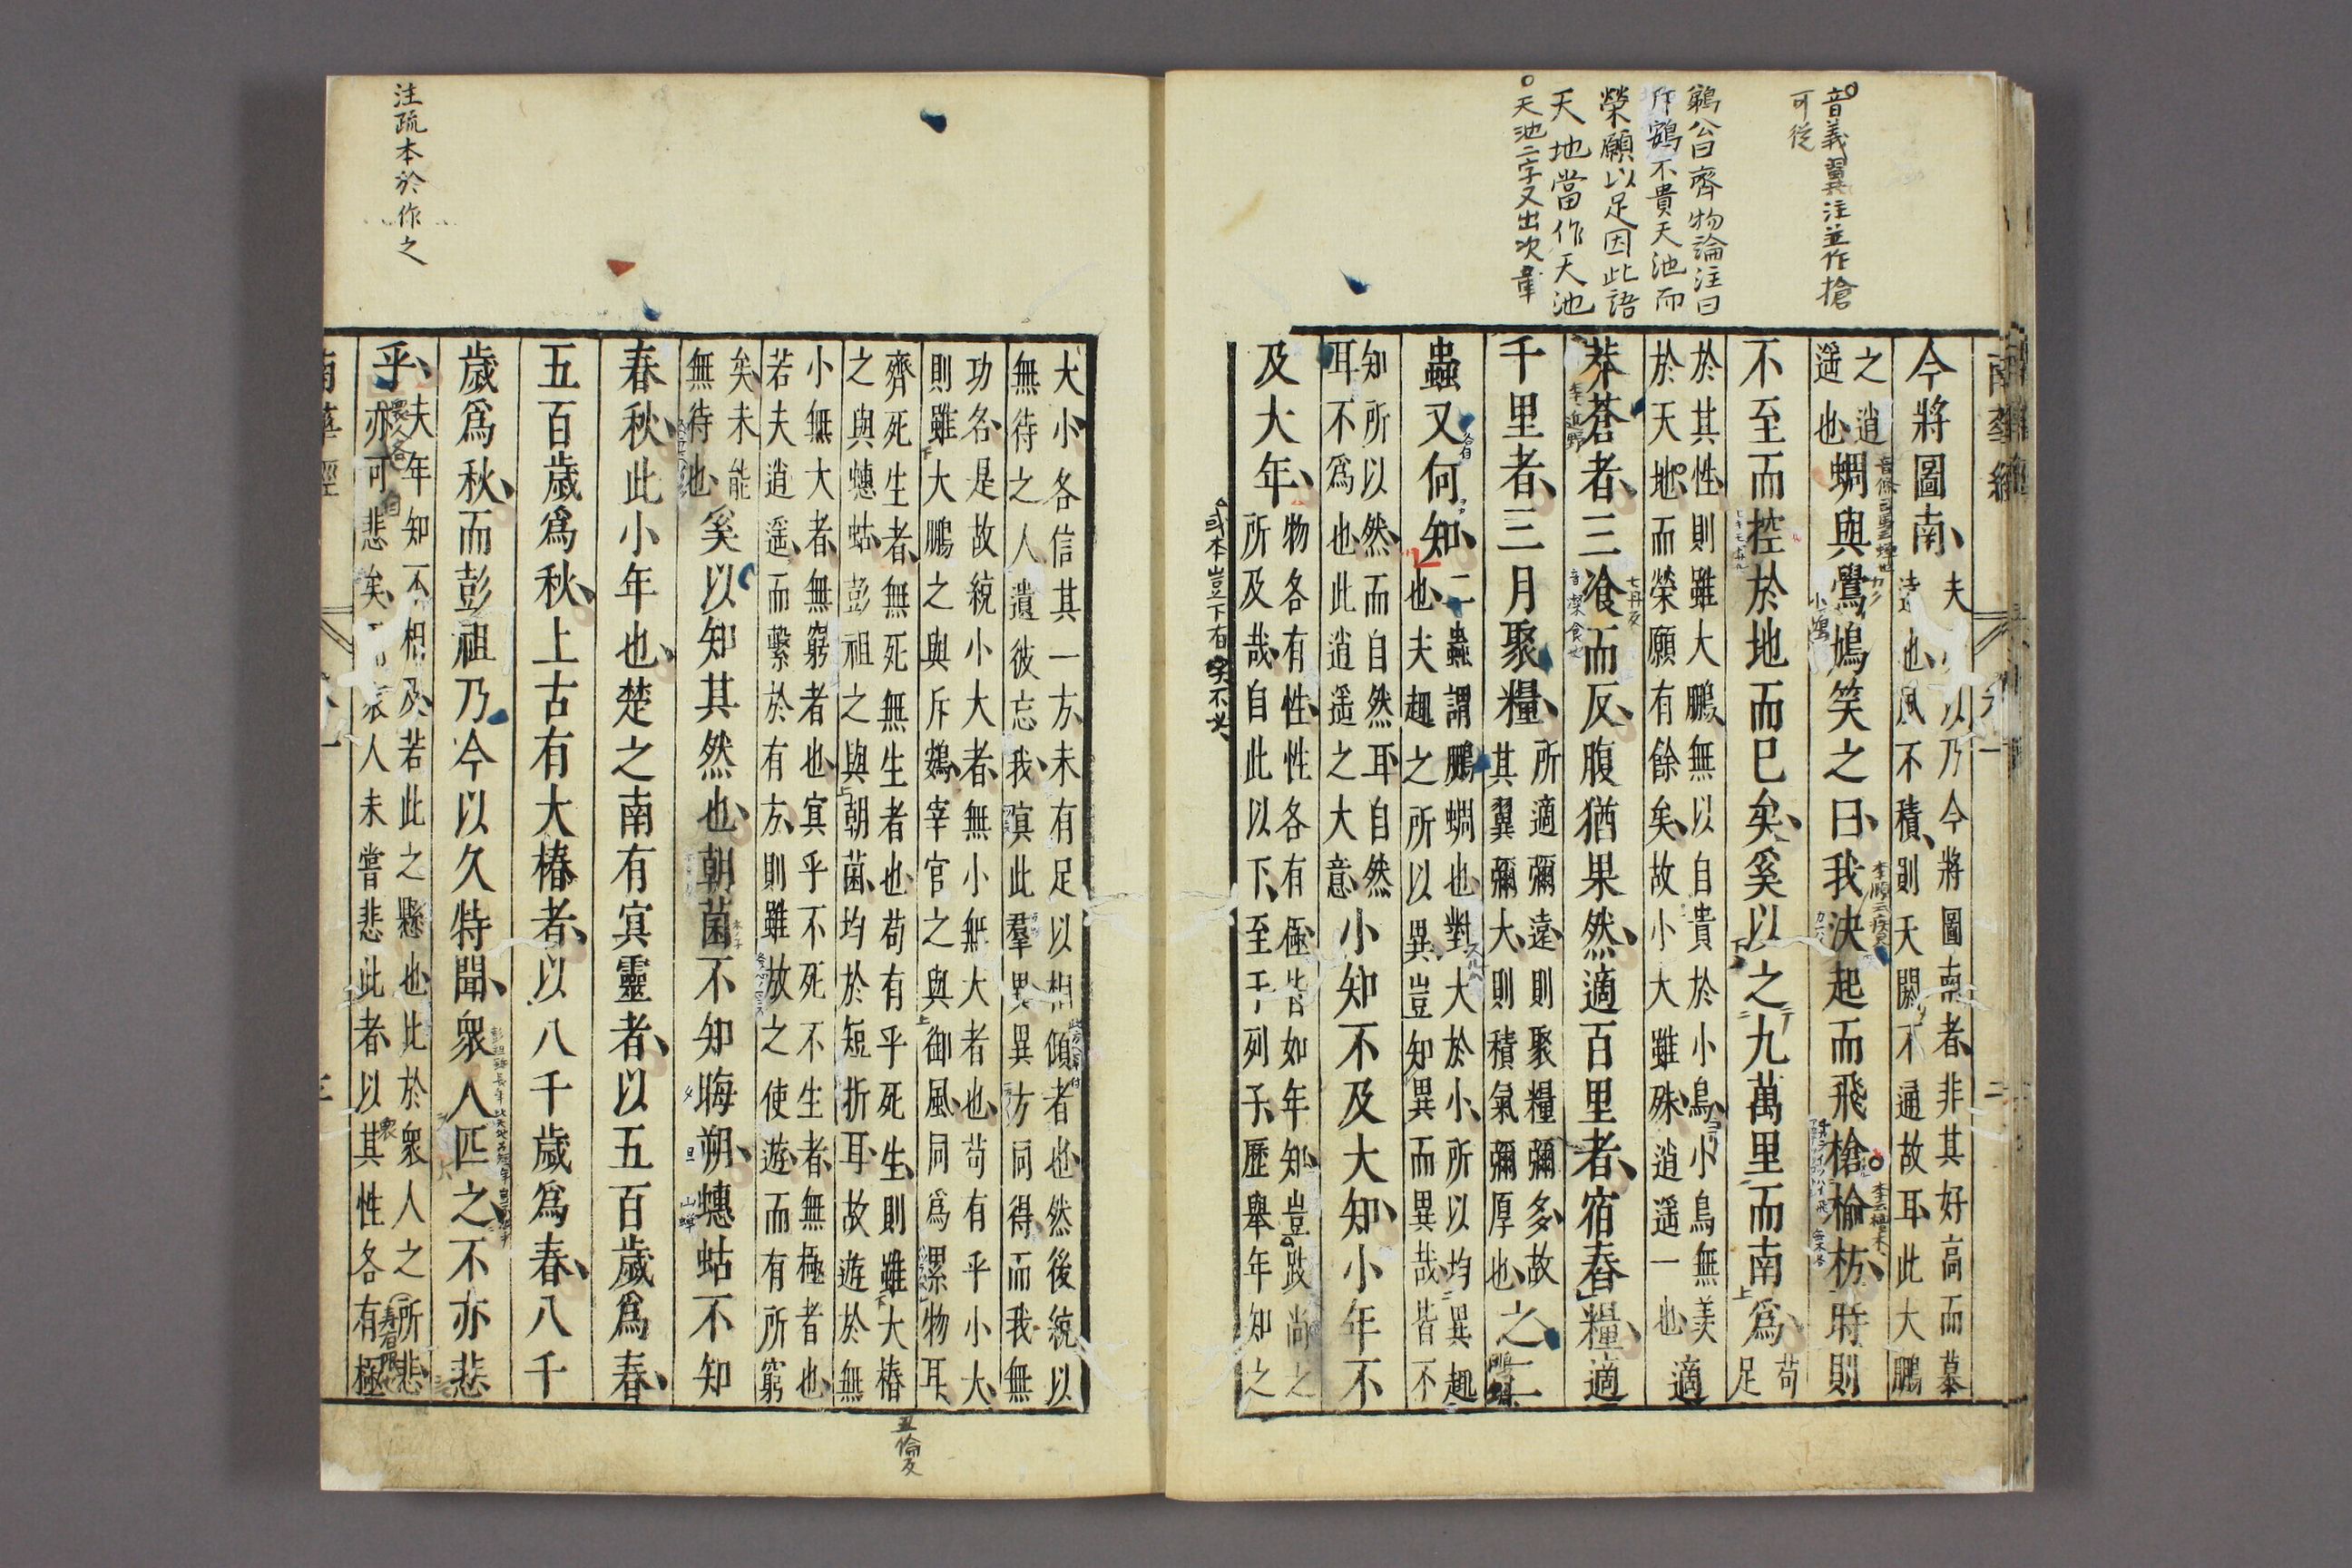 音義翼注並作搶
可從
公曰齊物論注曰
斥鷃不貴天池而
榮願以足因此語
天地當作天池
○天池二字又出次章
南華經 卷一 二
今將圖南、
夫 以乃今將圖南者、非其好高而慕
遠也、風不積、則夭閼不通故耳、此大鵬
之逍
遥也、
蜩與鷽鳩笑之曰、我決起而飛槍榆枋、時則
不至而控於地而已矣、奚以之九萬里而南爲、
苟
足
於其性則雖大鵬、無以自貴於小鳥、小鳥無美
於天地、而榮願有餘矣、故小大雖殊、逍遥一也
適
莽蒼者、三飡而反、腹猶果然、適百里者、宿舂糧、適
千里者、三月聚糧、
所適彌遠則聚糧彌多、故
其翼彌大、則積氣彌厚也、
之二
蟲又何知、
二蟲謂鵬蜩也對大於小、所以均異趣
也、夫趣之所以異、豈知異而異哉、皆不
知所以然、而自然耳、自然
耳不爲也此逍遥之大意、
小知不及大知、小年不
及大年、
物各有性、性各有極皆如年知、豈跂尚之
所及哉、自此以下、至于列子、歷舉年知之
或本豈下有字不从
大小、各信其一方、未有足以相傾者也、然後統以
無待之人、遺彼忘我、冥此羣異、異方同得、而我無
功名、是故統小大者、無小無大者也、苟有乎小大、
則雖大鵬之與斥鷃、宰官之與御風、同爲累物耳、
齊死生者、無死無生者也、苟有乎死生、則雖大椿
之與蟪蛄、彭祖之與朝菌、均於短折耳、故遊於無
小無大者、無窮者也、冥乎不死不生者、無極者也、
若夫逍遥、而繫於有方、則雖放之使遊、而有所窮
矣、未能
無待也、
奚以知其然也、朝菌不知晦朔、蟪蛄不知
春秋、此小年也、楚之南有冥靈者、以五百歲爲春、
五百歲爲秋、上古有大椿者、以八千歲爲春、八千
歲爲秋、而彭祖乃今以久特聞、衆人匹之、不亦悲
乎、
夫年知不相及、若此之懸也、此於衆人之所悲、
亦可悲矣、而衆人未嘗悲此者、以其性各有極
南華經 卷一 三
注疏本於作之
五倫反